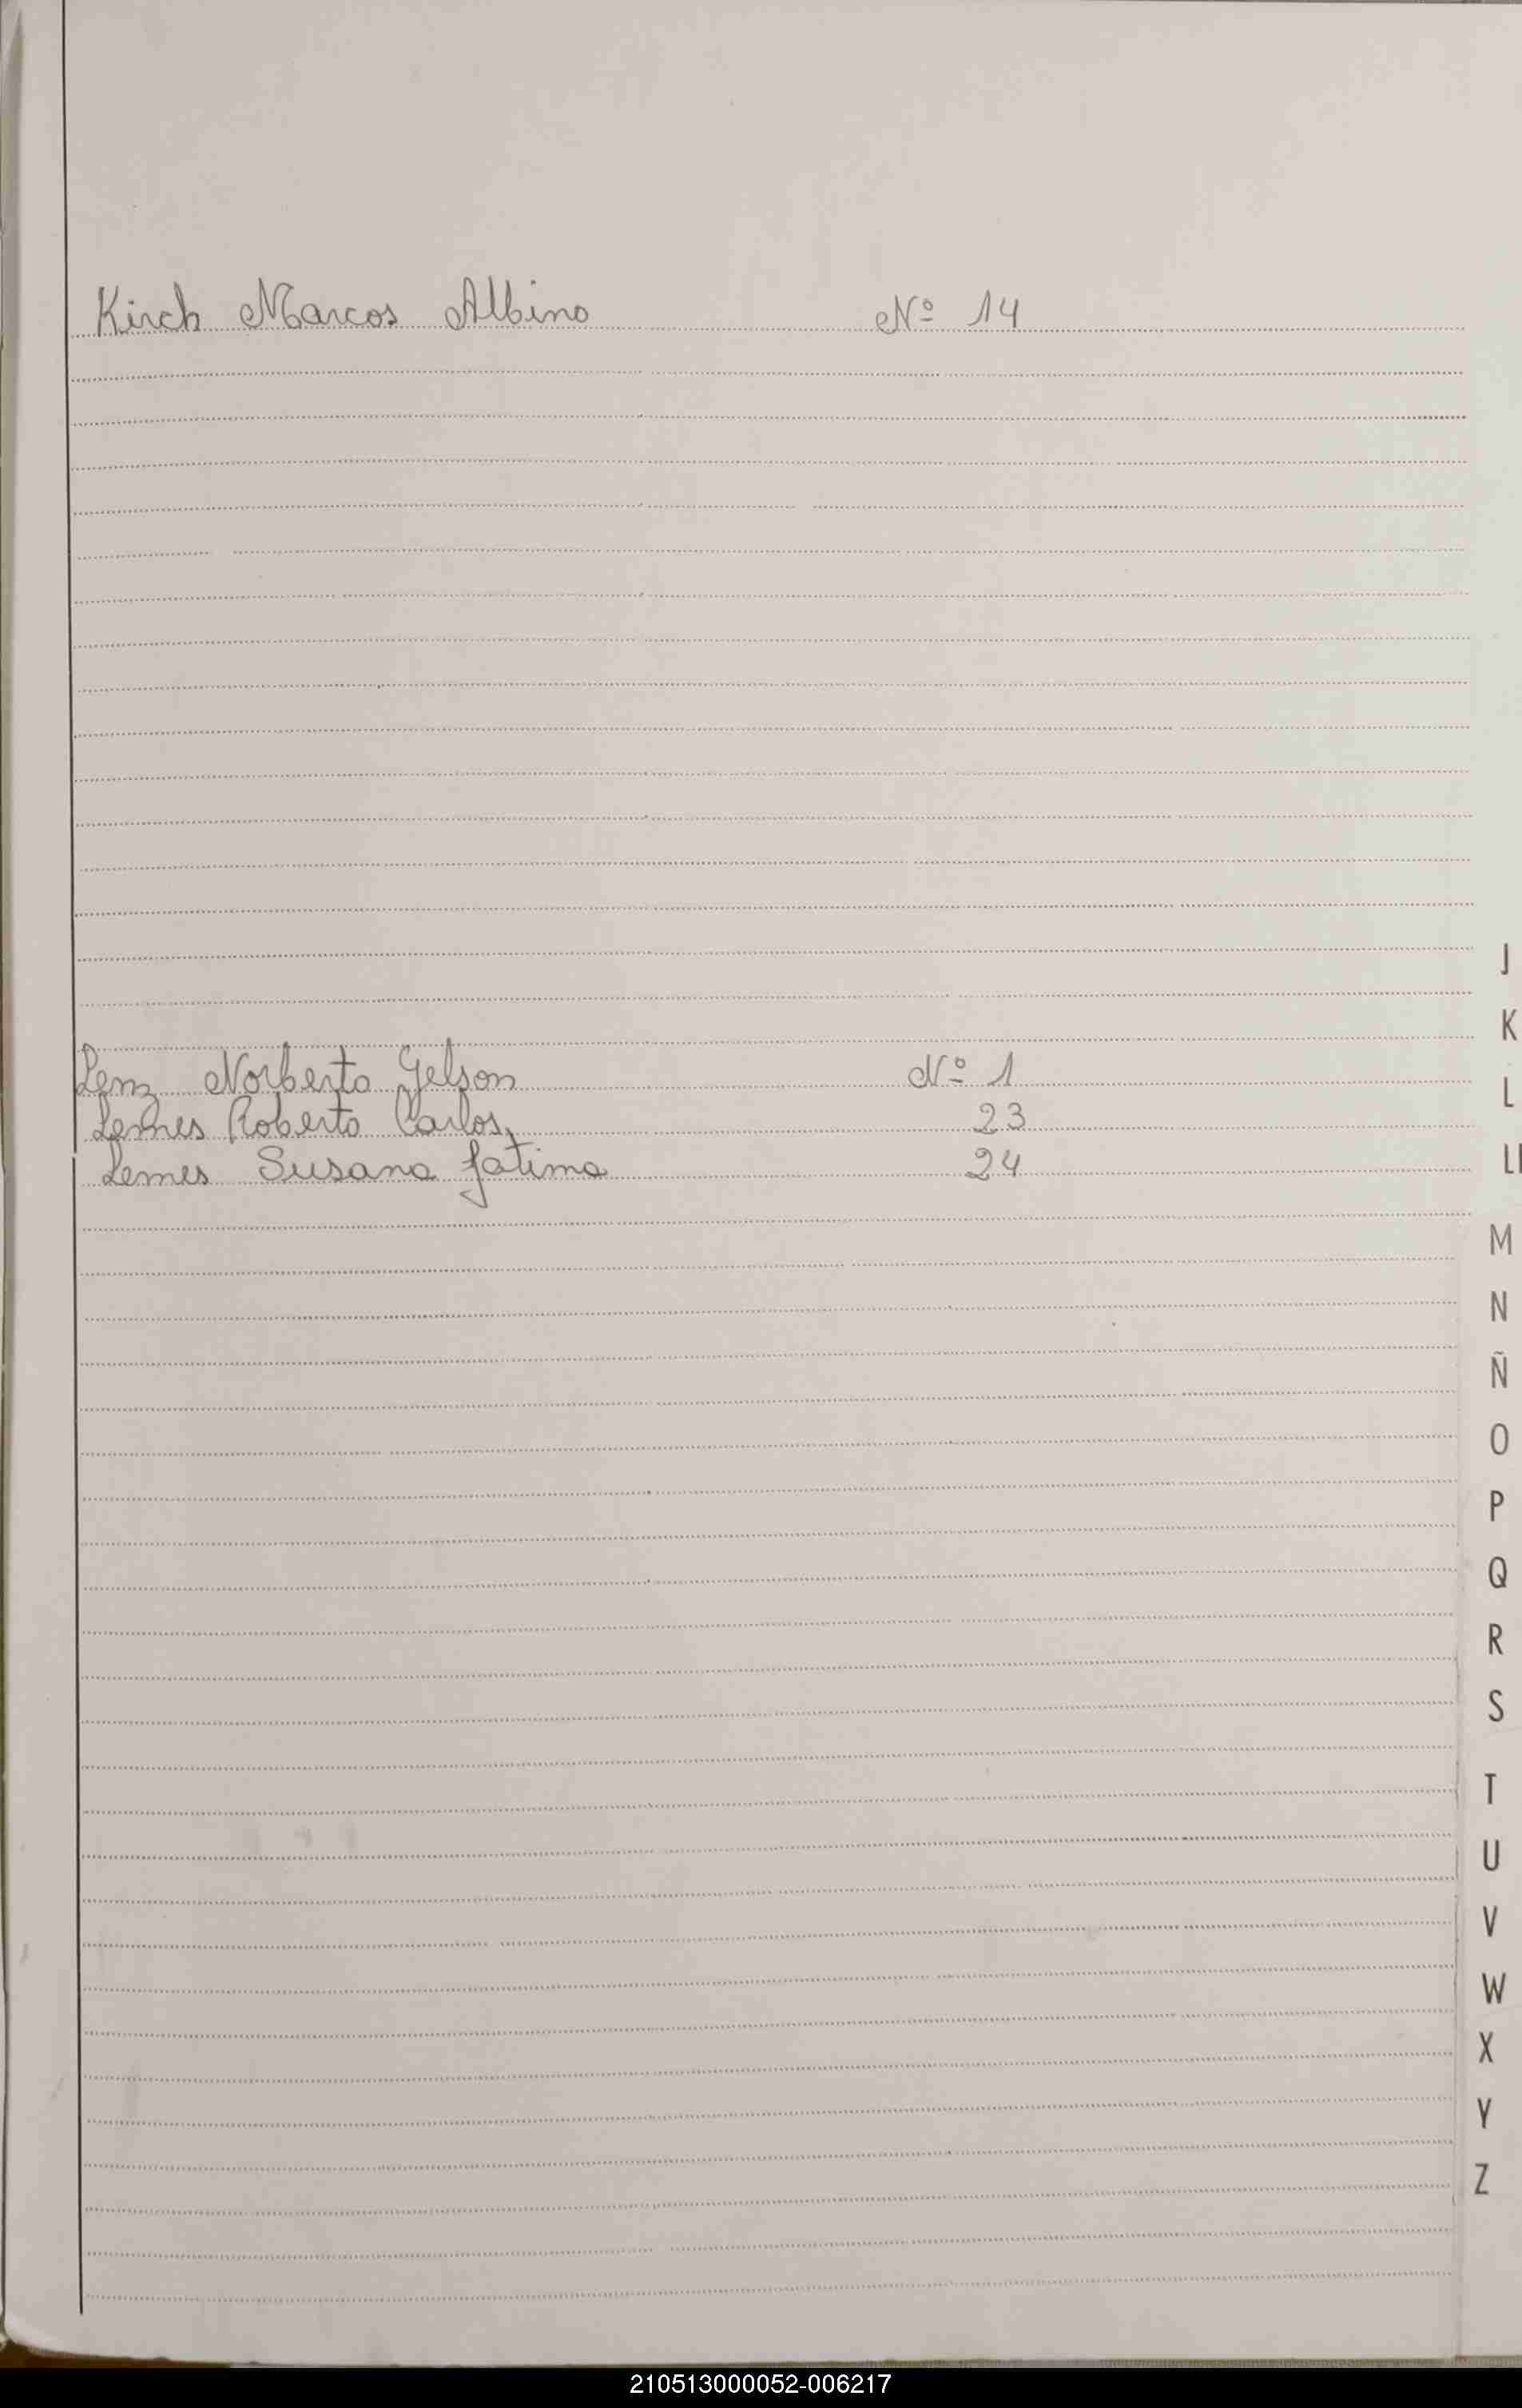 Kirch Marcos Albino Nº 14
Lenz Norberto Gelson Nº 1
Lemes Roberto Carlos, 23
Lemes Susana fatima 24
J
K
L
Ll
M
N
Ñ
O
P
Q
R
S
T
U
V
W
X
Y
Z
210513000052-006217